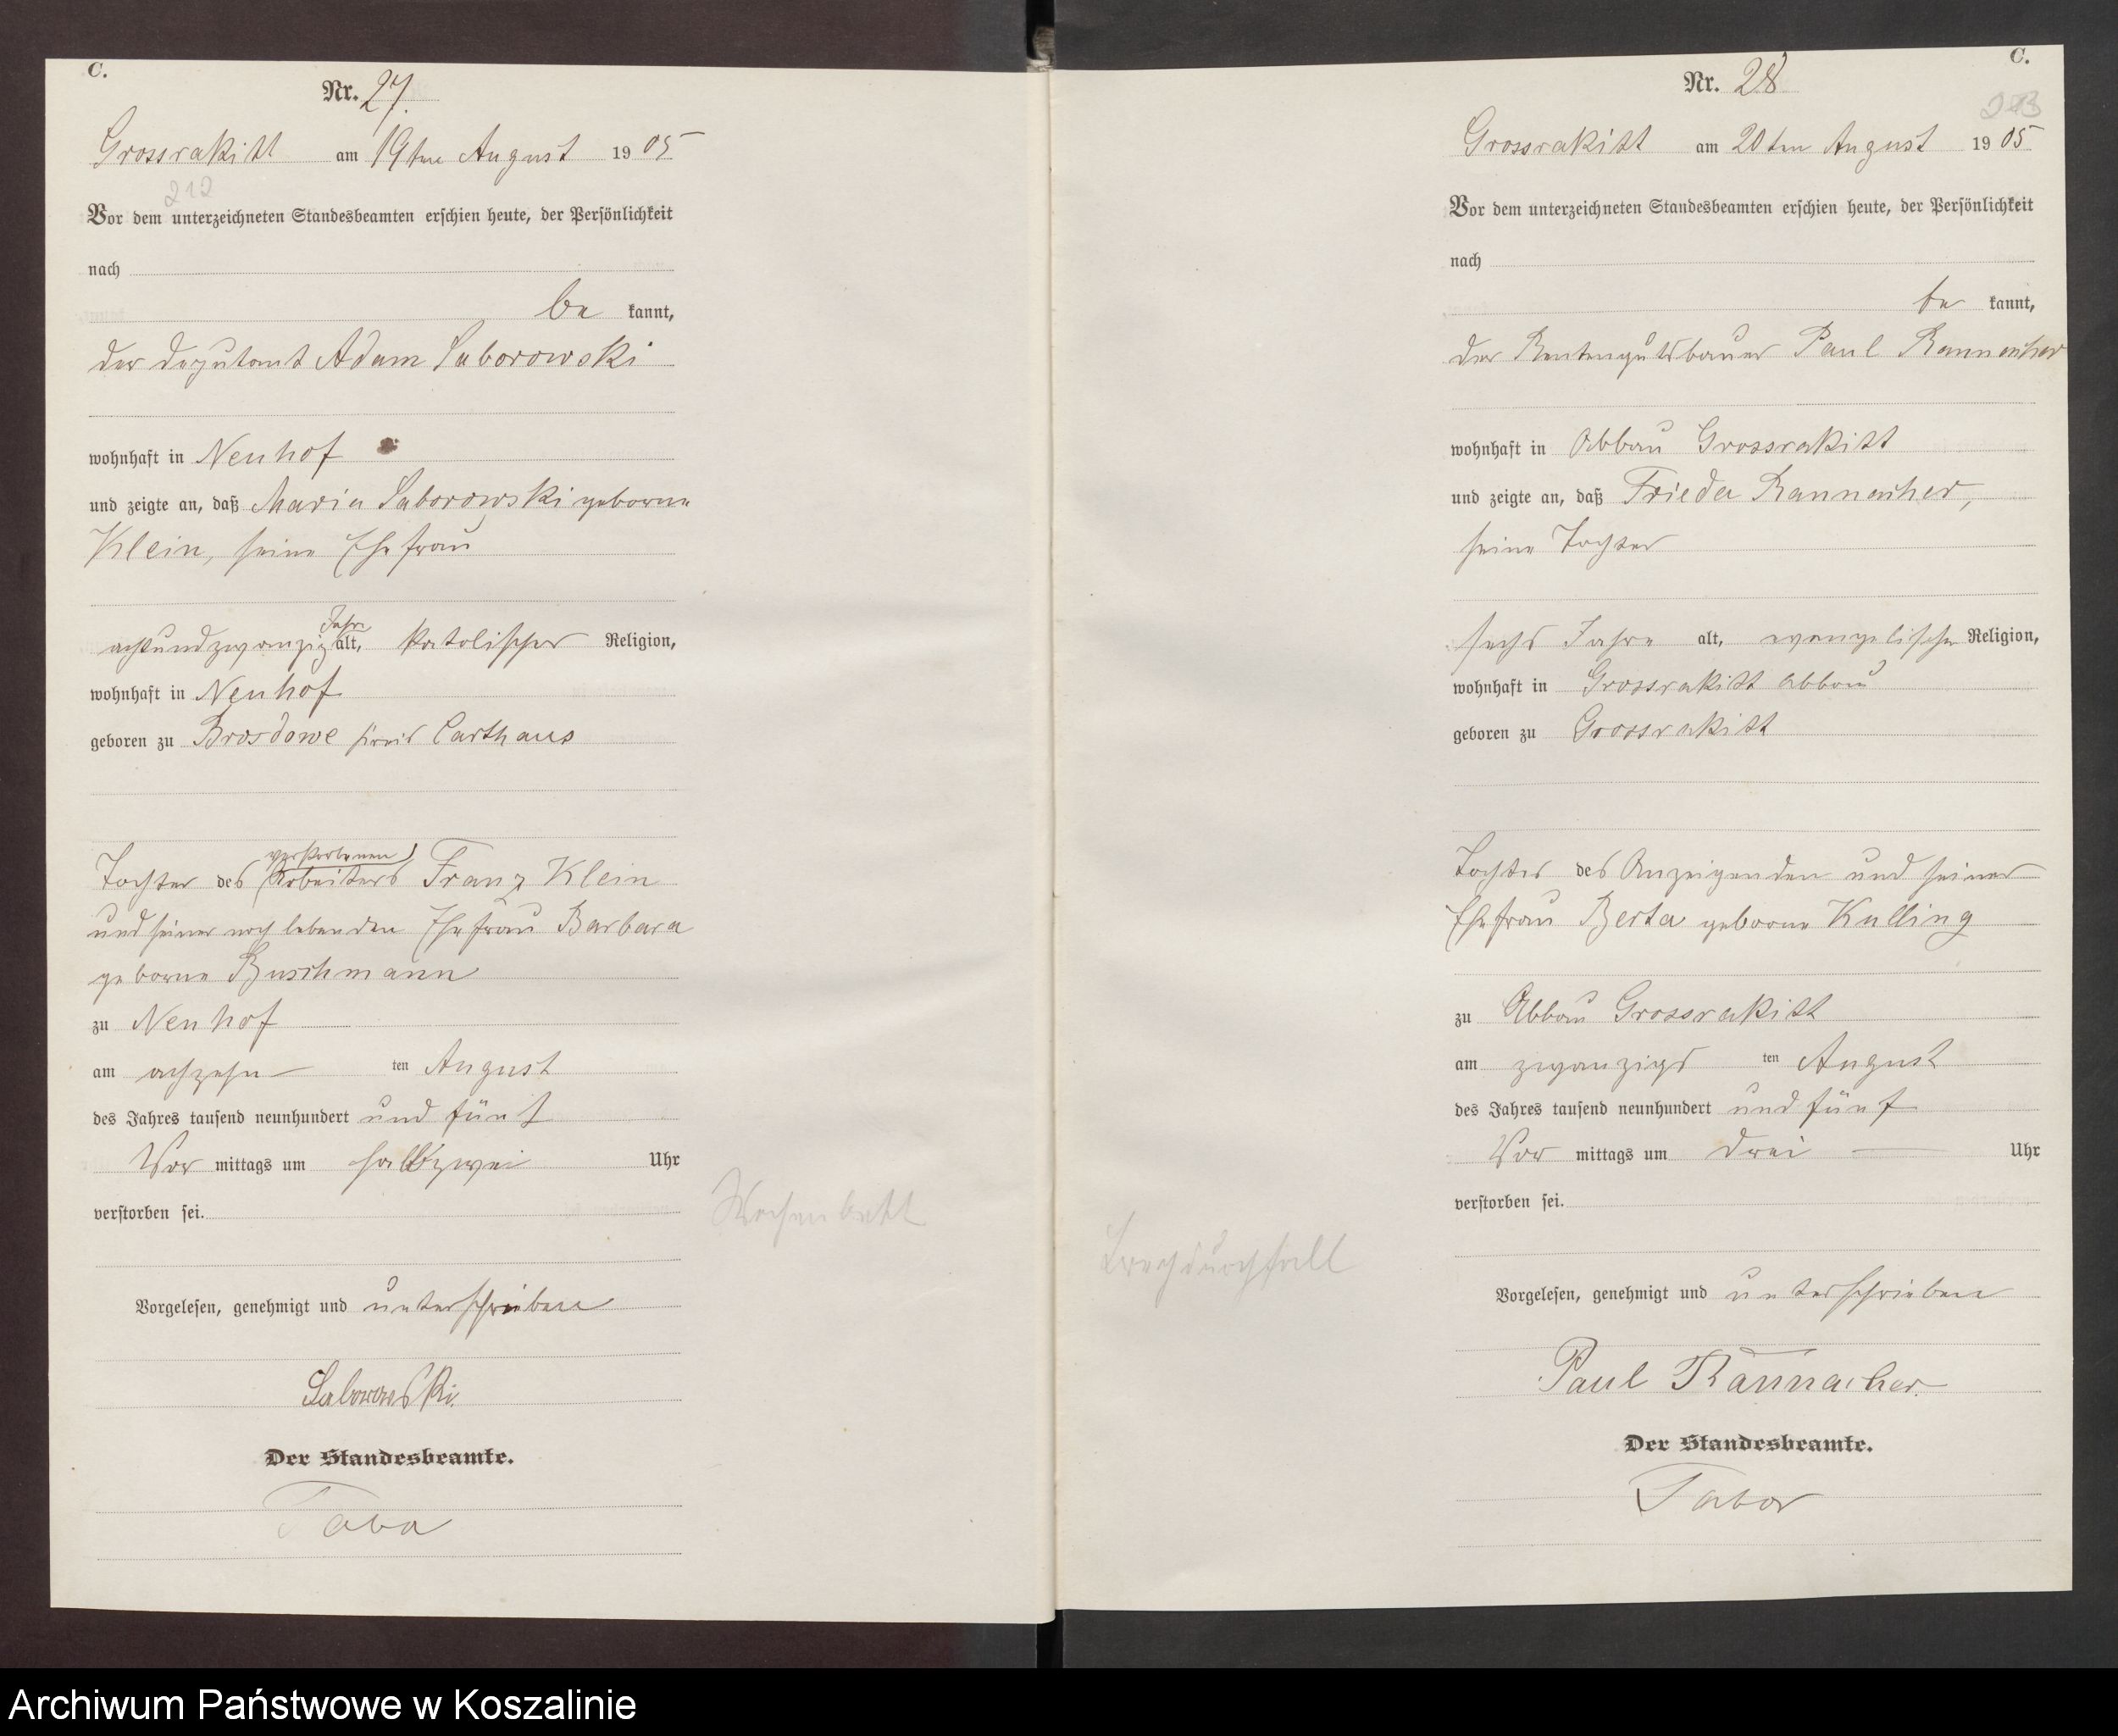 C.
Nr. 27.
Grossrakitt am 19ten August 1905
212
Vor dem unterzeichneten Standesbeamten erschien heute, der Persönlichkeit
nach
be kannt,
der Deputant Adam Saborowski
wohnhaft in Neuhof
und zeigte an, daß Maria Saborowski geborne
Klein, seine Ehefrau
Jahre
achtundzwanzig alt, katolischer Religion,
wohnhaft in Neuhof
geboren zu Brosdowe Kreis Carthaus
verstorbenen
Tochter des Arbeiters Franz Klein
und seiner noch lebenden Ehefrau Barbara
geborne Buschmann
zu Neuhof
am achzehn ten August
des Jahres tausend neunhundert und fünf
Vor mittags um halb zwei Uhr
verstorben sei.
Wochenbett
Vorgelesen, genehmigt und unterschrieben
Saborowski.
Der Standesbeamte.
C.
Nr. 28
213
Grossrakitt am 20ten August 1905
Vor dem unterzeichneten Standesbeamten erschien heute, der Persönlichkeit
nach
be kannt,
der Rentengutsbauer Paul Rannacher
wohnhaft in Abbau Grossrakitt
und zeigte an, daß Frieda Rannacher,
seine Tochter
sechs Jahre alt, evangelischer Religion,
wohnhaft in Grossrakitt Abbau
geboren zu Grossrakitt
Tochter des Anzeigenden und seiner
Ehefrau Berta geborne Kulling
zu Abbau Grossrakitt
am zwanzigs ten August
des Jahres tausend neunhundert und fünf
Vor mittags um drei Uhr
verstorben sei.
Brechdurchfall
Vorgelesen, genehmigt und unterschrieben
Paul Rannacher.
Der Standesbeamte.
Tabor
Archiwum Państwowe w Koszalinie